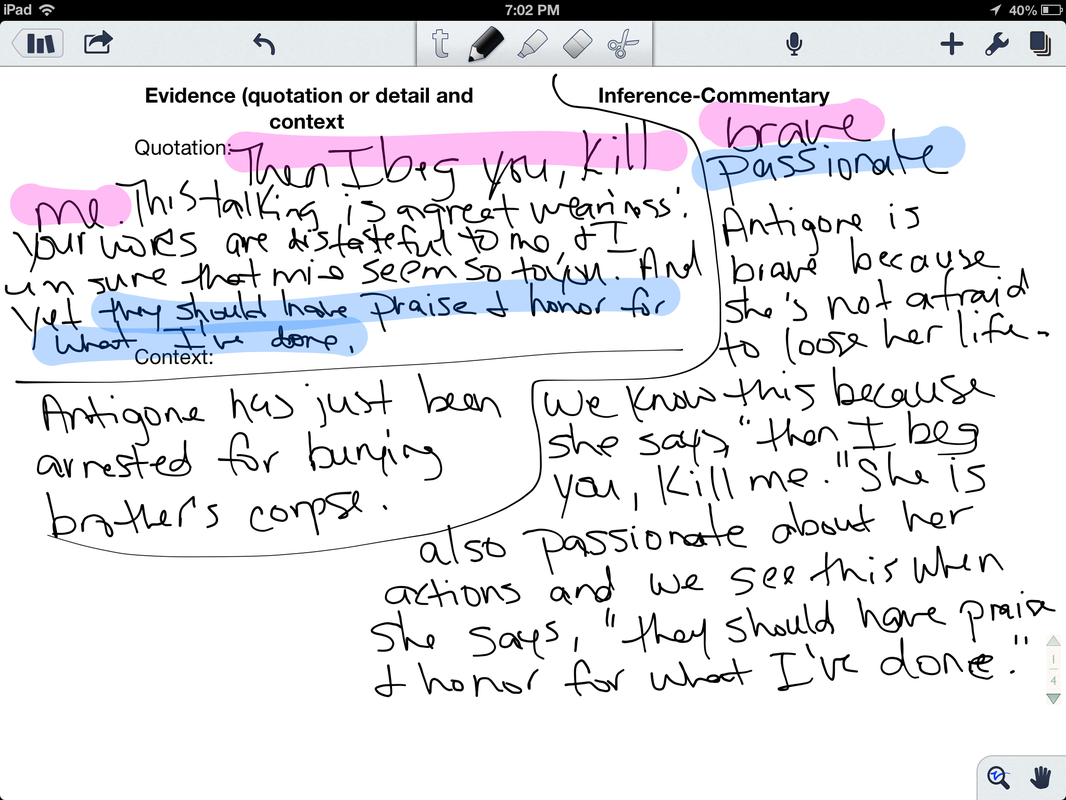 iPad
7:02 PM
40%
t
Evidence (quotation or detail and
context
Quotation: Then I beg you, kill
me. This talking is a great weariness:
your words are distasteful to me, & I
am sure that mine seem so to you. And
yet they should have praise & honor for
what I've done.
Context:
Antigone has just been
arrested for burying
brother's corpse.
Inference-Commentary
brave
Passionate
Antigone is
brave because
she's not afraid
to loose her life.
We know this because
she says, "then I beg
you, kill me." She is
also passionate about her
actions and we see this when
she says, "they should have praise
& honor for what I've done."
1
4